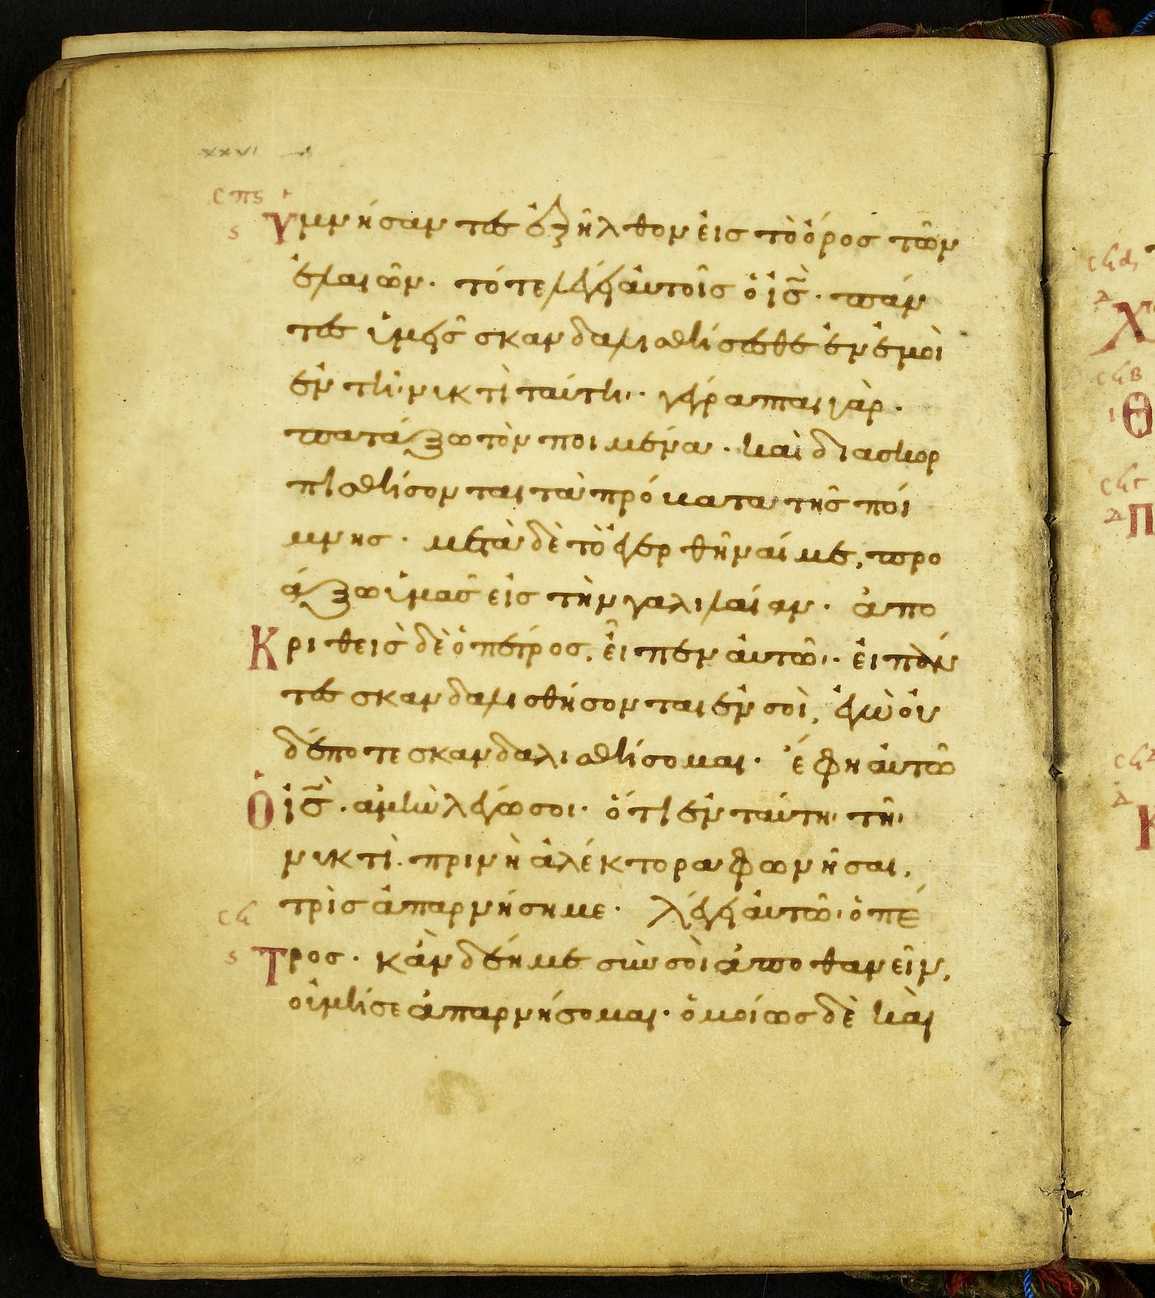 xxvi
σπϛ
ϛ Ὑμνήσαντες ἐξῆλθον εἰς τὸ ὄρος τῶν
ἐλαιῶν. τότε λέγει αὐτοῖς ὁ ι̅ς̅. πάν
τες ὑμεῖς σκανδαλισθήσεσθε ἐν ἐμοὶ
ἐν τῆι νυκτὶ ταύτηι. γέγραπται γὰρ.
πατάξω τὸν ποιμένα. καὶ διασκορ
πισθήσονται τὰ πρόβατα τῆς ποί
μνης. μετὰ δὲ τὸ ἐγερθῆναί με, προ
άξω ὑμᾶς εἰς τὴν γαλιλαίαν. ἀπο
Κριθεὶς δὲ ὁ πέτρος, εἶπεν αὐτῶι. εἰ πάν
τες σκανδαλισθήσονται ἐν σοὶ, ἐγὼ οὐ
δέποτε σκανδαλισθήσομαι. ἔφη αὐτῶ
Ὁ ι̅ς̅. ἀμὴν λέγω σοι. ὅτι ἐν ταύτηι τῆι
νυκτὶ. πρινὴ ἀλέκτορα φωνῆσαι,
τρὶς ἀπαρνήσηι με. λέγει αὐτῶι ὁ πέ
σπ
ϛ Τρος. κἂν δέηι με σὺν σοὶ ἀποθανεῖν,
οὐ μή σε ἀπαρνήσομαι. ὁμοίως δὲ καὶ
Χ
Θ
Π
Κ